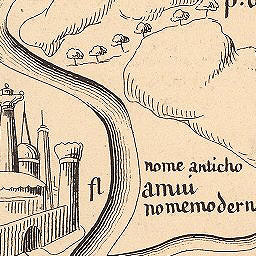 p.
fl
nome anticho
amui
nomemodern